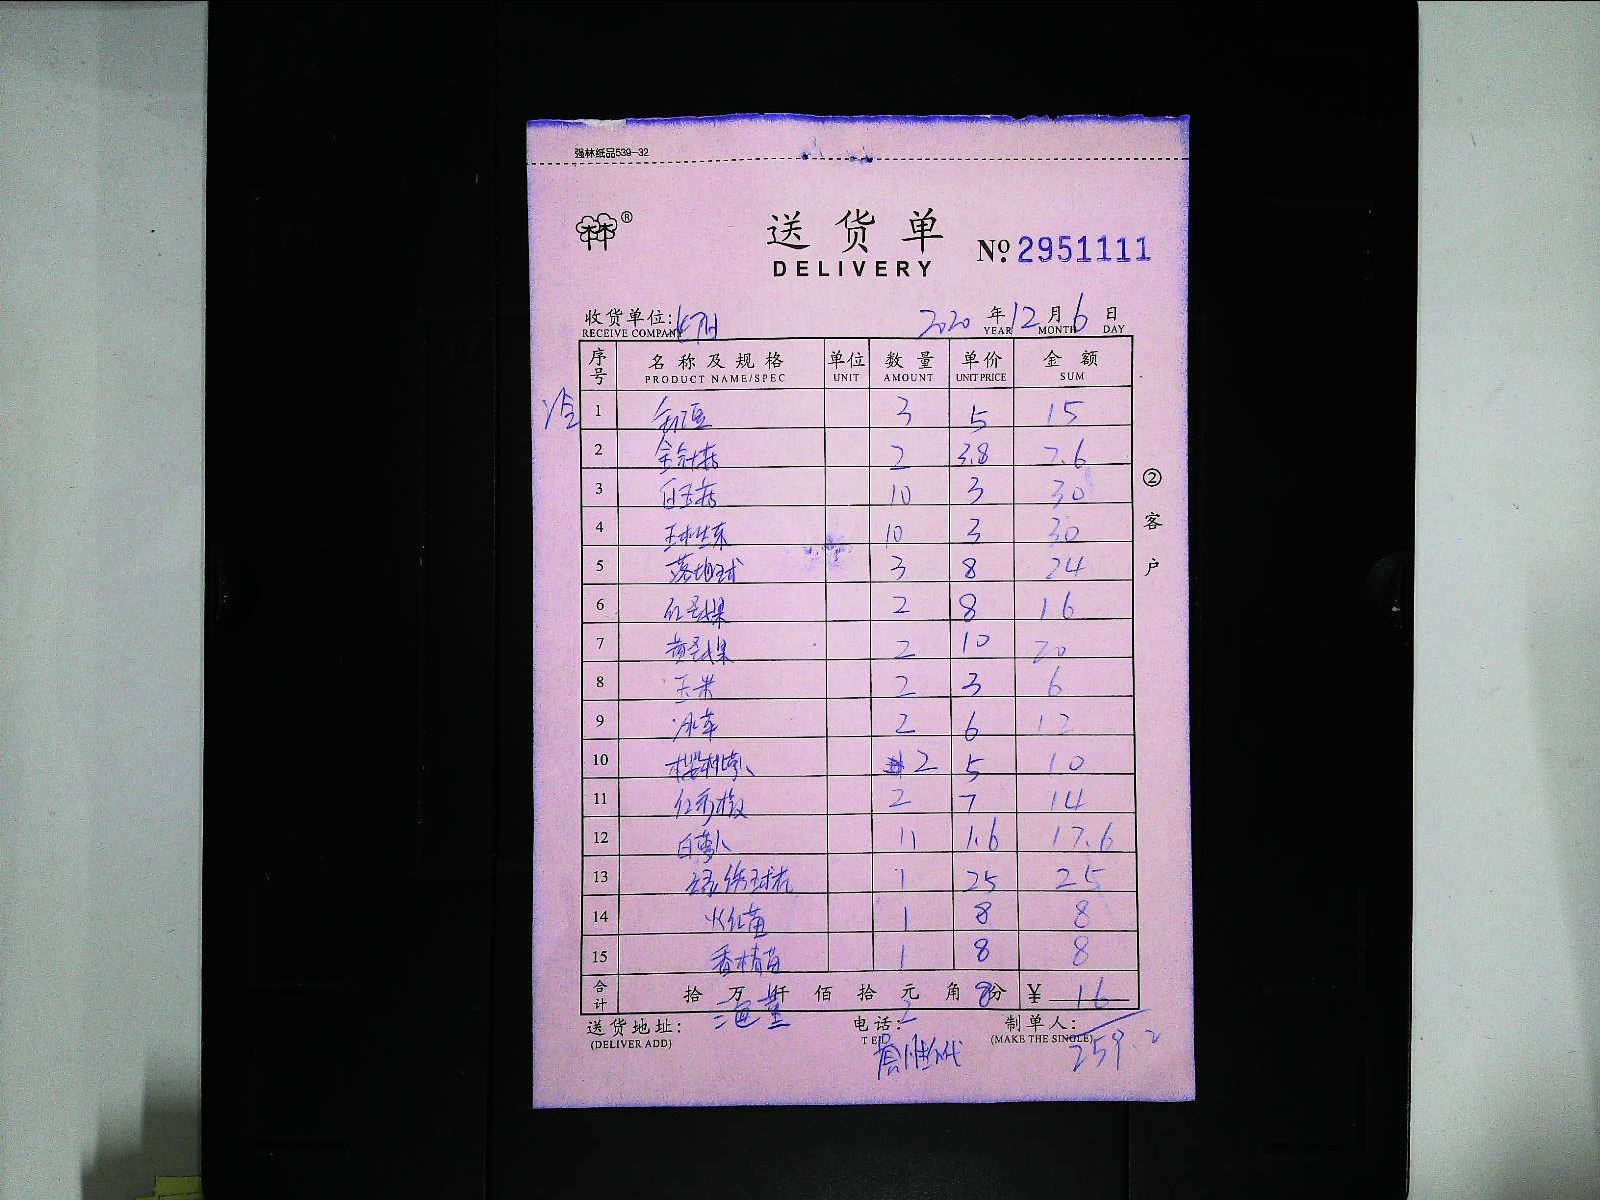 强林纸品539-32
林林®
送货单
DELIVERY
№ 2951111
收货单位:
RECEIVE COMPANY
2020 年 12 月 6 日
YEAR MONTH DAY
序号 名称及规格 单位 数量 单价 金额
PRODUCT NAME/SPEC UNIT AMOUNT UNIT PRICE SUM
冷 1 3 5 15
2 金针菇 2 3.8 7.6
3 白玉菇 10 3 30
4 球生菜 10 3 30
5 3 8 24
6 红圣果 2 8 16
7 黄圣果 2 10 20
8 玉米 2 3 6
9 冰草 2 6 12
10 2 5 10
11 红彩椒 2 7 14
12 白萝卜 11 1.6 17.6
13 1 25 25
14 火红苗 1 8 8
15 香椿苗 1 8 8
合计 拾 万 仟 佰 拾 元 角 分 ¥ 16
海 2 8
送货地址:
(DELIVER ADD)
电话:
TEL
制单人:
(MAKE THE SINGLE)
259.2
②客户